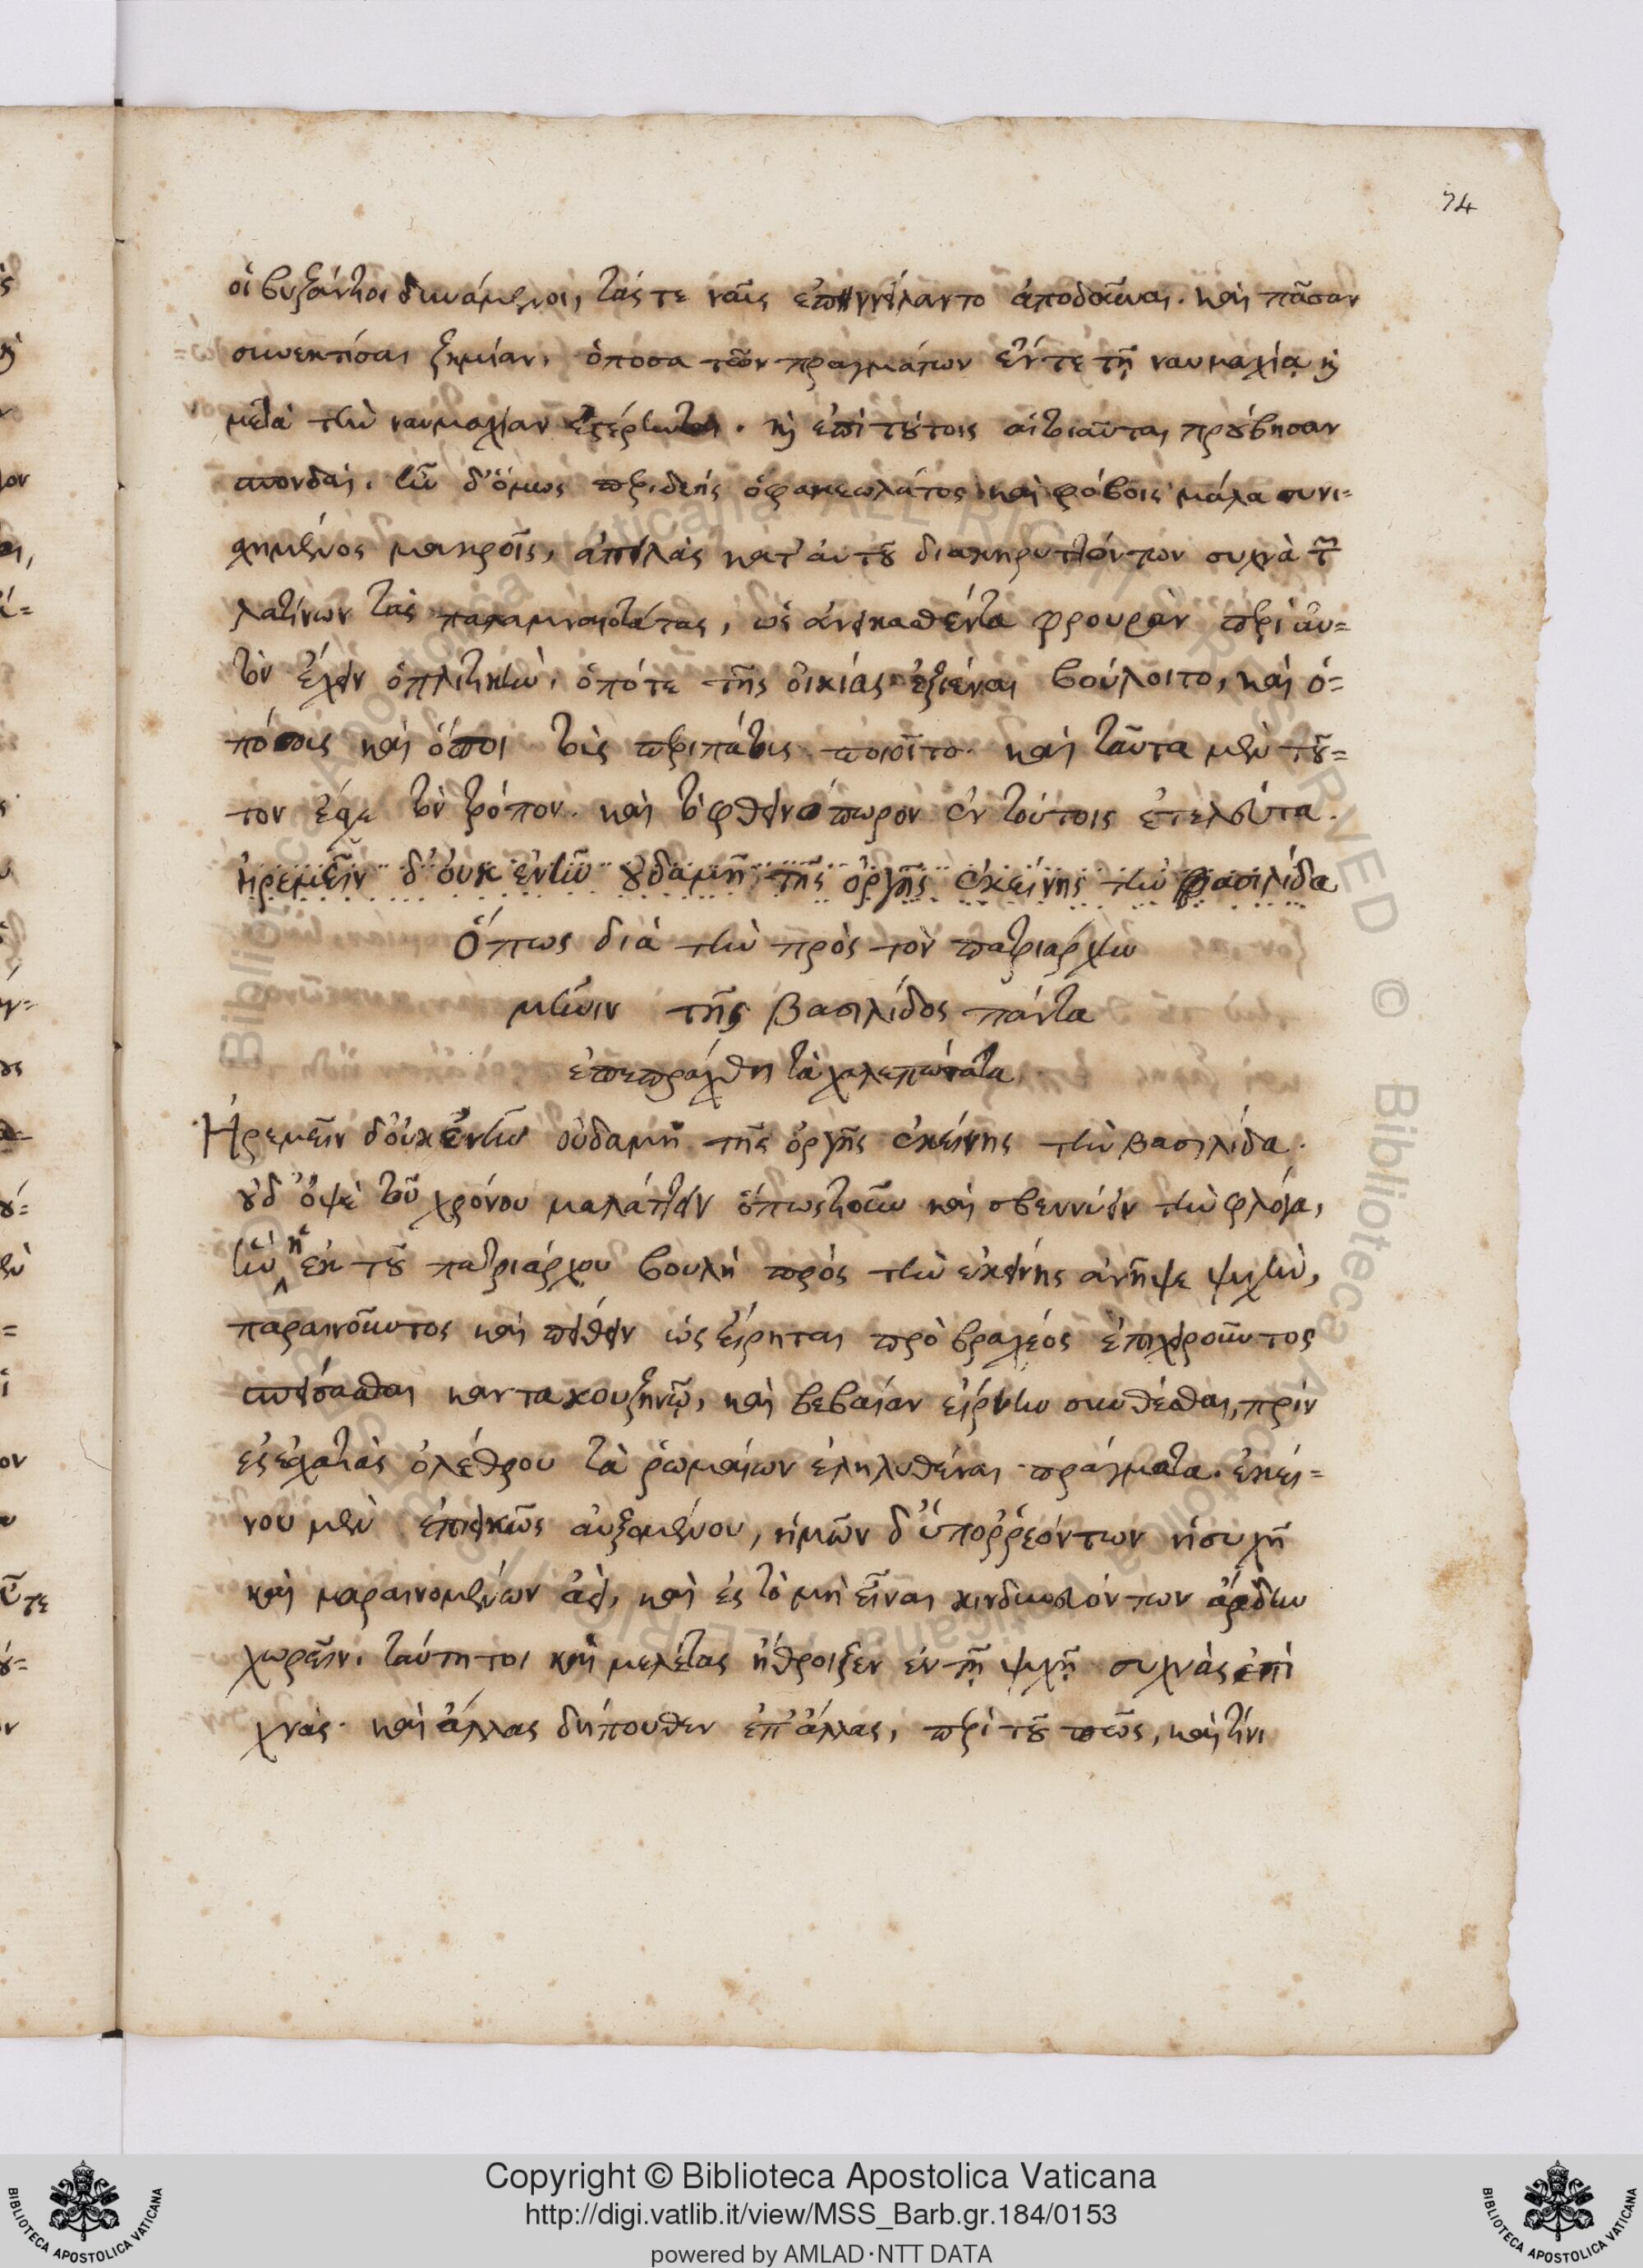 74
οἱ βυζάντιοι δυνάμενοι, τάς τε ναῦς ἐπηγγείλαντο ἀποδοῦναι. καὶ πᾶσαν
συνεκτίσαι ζημίαν, ὁπόσα τῶν πραγμάτων ἔν τε τῇ ναυμαχίᾳ καὶ
μετὰ τὴν ναυμαχίαν ἐστέρηνται. καὶ ἐπὶ τούτοις αἱ τοιαῦται προὔβησαν
σπονδαί. ἦν δ' ὅμως περιδεὴς ὁ φακεωλάτος καὶ φόβοις μάλα συνι=
σχημένος μακροῖς, ἀπειλὰς κατ' αὐτοῦ διακηρυττόντων συχνὰ τῶν
λατίνων τὰς παλαμναιοτάτας, ὡς ἀναγκασθέντα φρουρὰν περὶ αὑ=
τὸν ἔχειν ὁπλιτικὴν, ὁπότε τῆς οἰκίας ἐξιέναι βούλοιτο, καὶ ὁ=
πόσους καὶ ὅποι τοὺς περιπάτους ποιοῖτο. καὶ ταῦτα μὲν τοῦ=
τον ἔσχε τὸν τρόπον. καὶ τὸ φθινόπωρον ἐν τούτοις ἐτελεύτα.
ἠρεμεῖν δ' οὐκ ἐνῆν οὐδαμῆ τῆς ὀργῆς ἐκείνης τὴν βασιλίδα
Ὅπως διὰ τὴν πρὸς τὸν πατριάρχην
μῆνιν τῆς βασιλίδος πάντα
ἐπεπράχθη τὰ χαλεπώτατα
Ἠρεμεῖν δ' οὐκ ἐνῆν οὐδαμῆ τῆς ὀργῆς ἐκείνης τὴν βασιλίδα.
οὐδ' ὀψὲ τοῦ χρόνου μαλάττειν ὁπωστιοῦν καὶ σβεννύειν τὴν φλόγα,
ἣν ἡ ἐκ τοῦ πατριάρχου βουλὴ πρὸς τὴν ἐκείνης ἀνῆψε ψυχὴν,
παραινοῦντος καὶ πείθειν ὡς εἴρηται πρὸ βραχέος ἐπιχειροῦντος
σπείσασθαι καντακουζηνῷ, καὶ βεβαίαν εἰρήνην συνθέσθαι, πρὶν
ἐς ἐσχατιὰς ὀλέθρου τὰ ῥωμαίων ἐληλυθέναι πράγματα. ἐκεί=
νου μὲν ἐπιεικῶς αὐξομένου, ἡμῶν δ' ὑπορῥεόντων ἡσυχῆ
καὶ μαραινομένων ἀεὶ, καὶ ἐς τὸ μὴ εἶναι κινδυνευόντων ἄρδην
χωρεῖν. ταύτῃ τοι καὶ μελέτας ἤθροιζεν ἐν τῇ ψυχῇ συχνὰς ἐπὶ
χνάς. καὶ ἄλλας δήπουθεν ἐπ' ἄλλας, περὶ τοῦ πῶς, καὶ τίνι
Copyright © Biblioteca Apostolica Vaticana
http://digi.vatlib.it/view/MSS_Barb.gr.184/0153
powered by AMLAD·NTT DATA
BIBLIOTECA APOSTOLICA VATICANA
BIBLIOTECA APOSTOLICA VATICANA